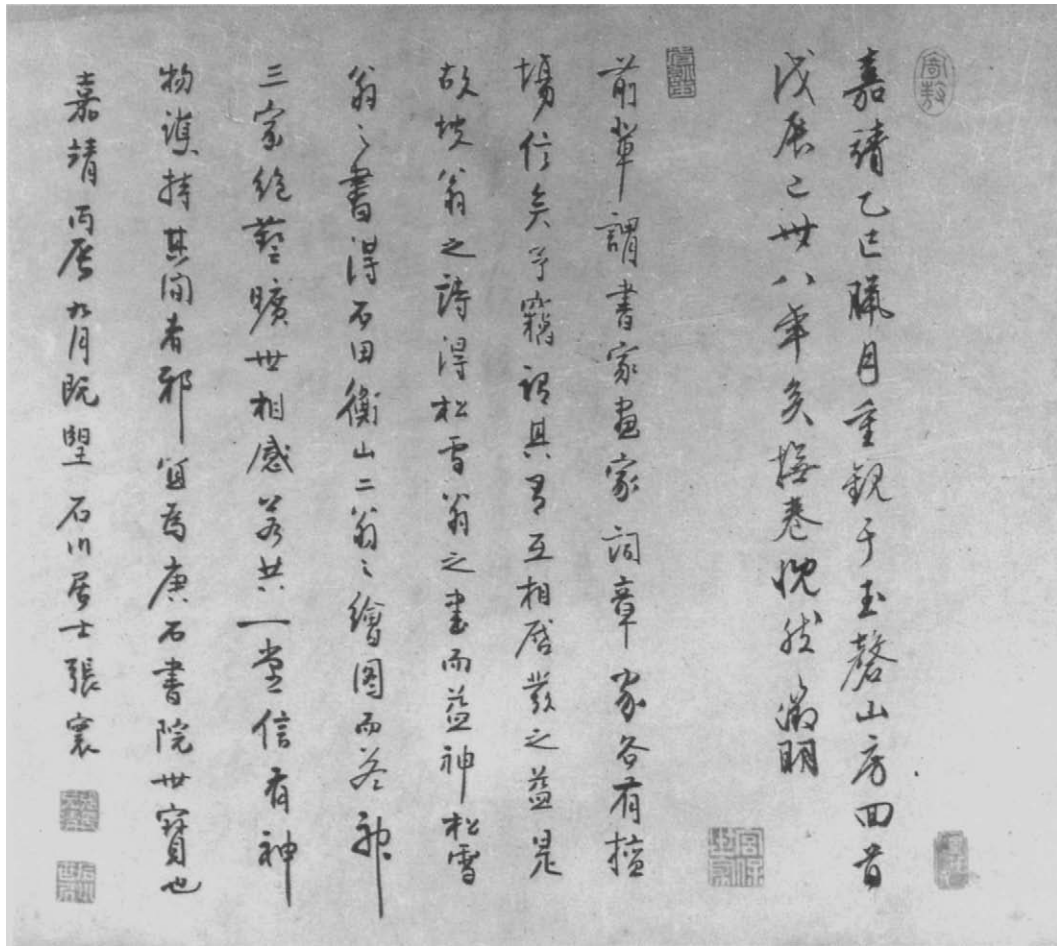 嘉靖乙巳臘月重觀于玉磬山房回首
戊辰已卅八年矣撫卷怳然 徵明
前輩謂書家畫家詞章家各有擅
場信矣予竊謂其有互相啓發之益是
故坡翁之詩得松雪翁之書而益神松雪
翁之書得石田衡山二翁之繪圖而益神
三家絕藝曠世相感若共一堂信有神
物護持其間者邪宜為唐石書院世寶也
嘉靖丙辰九月既望石川居士張寰